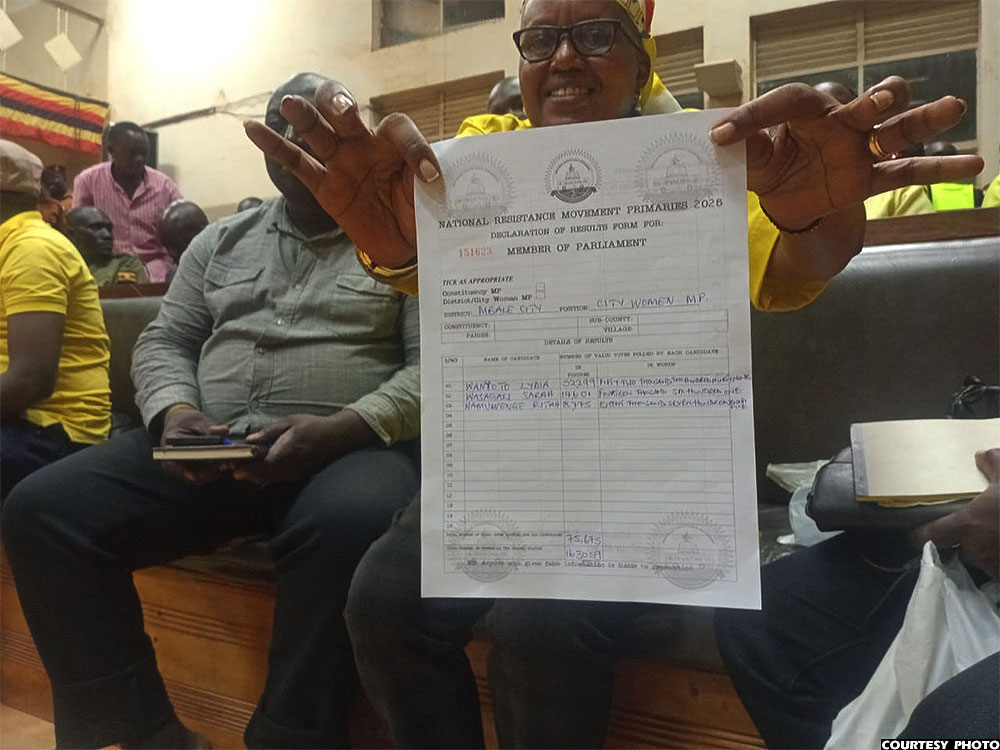 NATIONAL RESISTANCE MOVEMENT PRIMARIES 2025
DECLARATION OF RESULTS FORM FOR:
151623 MEMBER OF PARLIAMENT
TICK AS APPROPRIATE
Constituency MP
District/City Woman MP
DISTRICT: MBALE CITY POSITION: CITY WOMEN MP
CONSTITUENCY: SUB-COUNTY:
PARISH: VILLAGE:
DETAILS OF RESULTS
S/NO NAME OF CANDIDATE NUMBER OF VALID VOTES POLLED BY EACH CANDIDATE
IN FIGURES IN WORDS
01 WANYOTO LYDIA 52299 FIFTY TWO THOUSAND
02 WASAGALI SARAH 14601 FOURTEEN THOUSAND SIX HUNDRED ONE
03 NAMUWENGE 8,775 EIGHT THOUSAND SEVEN HUNDRED
04
05
06
07
08
09
10
11
12
13
14
15
75,675
163059
NB. Anyone who gives false information is liable to prosecution
COURTESY PHOTO